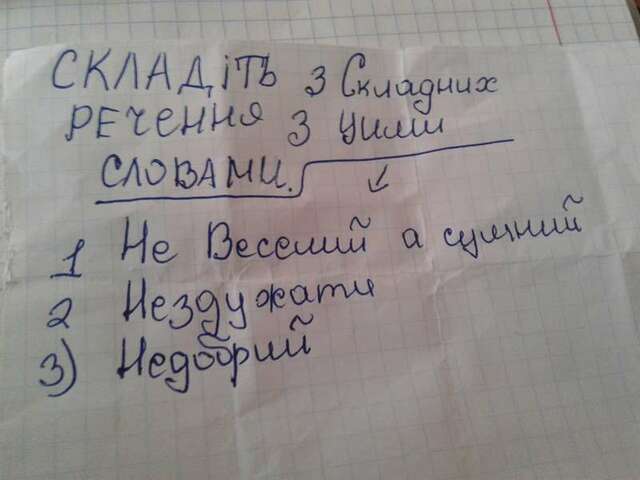 СКЛАДІТЬ 3 Складних
РЕЧЕННЯ З ЦИМИ
СЛОВАМИ.
1 Не Веселий а сумний
2 Нездужати
3) Недобрий